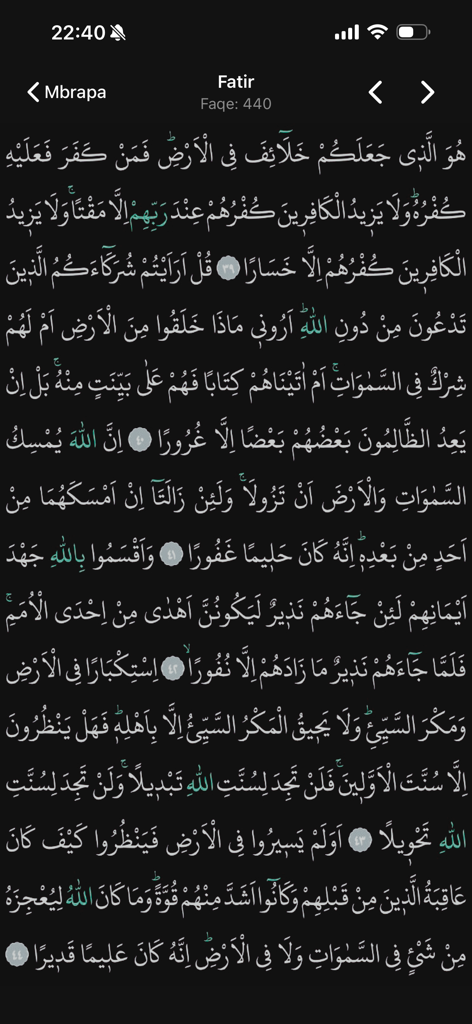 22:40
Mbrapa
Fatir
Faqe: 440
هُوَ الَّذ۪ى جَعَلَكُمْ خَلَٓائِفَ فِى الْاَرْضِۜ فَمَنْ كَفَرَ فَعَلَيْهِ
كُفْرُهُۜ وَلَا يَز۪يدُ الْكَافِر۪ينَ كُفْرُهُمْ عِنْدَ رَبِّهِمْ اِلَّا مَقْتًاۚ وَلَا يَز۪يدُ
الْكَافِر۪ينَ كُفْرُهُمْ اِلَّا خَسَارًا ﴿٣٩﴾ قُلْ اَرَاَيْتُمْ شُرَكَٓاءَكُمُ الَّذ۪ينَ
تَدْعُونَ مِنْ دُونِ اللّٰهِۜ اَرُون۪ى مَاذَا خَلَقُوا مِنَ الْاَرْضِ اَمْ لَهُمْ
شِرْكٌ فِى السَّمٰوَاتِۚ اَمْ اٰتَيْنَاهُمْ كِتَابًا فَهُمْ عَلٰى بَيِّنَتٍ مِنْهُۚ بَلْ اِنْ
يَعِدُ الظَّالِمُونَ بَعْضُهُمْ بَعْضًا اِلَّا غُرُورًا ﴿٤٠﴾ اِنَّ اللّٰهَ يُمْسِكُ
السَّمٰوَاتِ وَالْاَرْضَ اَنْ تَزُولَاۚ وَلَئِنْ زَالَتَٓا اِنْ اَمْسَكَهُمَا مِنْ
اَحَدٍ مِنْ بَعْدِه۪ۜ اِنَّهُ كَانَ حَل۪يمًا غَفُورًا ﴿٤١﴾ وَاَقْسَمُوا بِاللّٰهِ جَهْدَ
اَيْمَانِهِمْ لَئِنْ جَٓاءَهُمْ نَذ۪يرٌ لَيَكُونُنَّ اَهْدٰى مِنْ اِحْدَى الْاُمَمِۚ
فَلَمَّا جَٓاءَهُمْ نَذ۪يرٌ مَا زَادَهُمْ اِلَّا نُفُورًاۙ ﴿٤٢﴾ اِسْتِكْبَارًا فِى الْاَرْضِ
وَمَكْرَ السَّيِّئِۜ وَلَا يَح۪يقُ الْمَكْرُ السَّيِّئُ اِلَّا بِاَهْلِه۪ۜ فَهَلْ يَنْظُرُونَ
اِلَّا سُنَّتَ الْاَوَّل۪ينَۚ فَلَنْ تَجِدَ لِسُنَّتِ اللّٰهِ تَبْد۪يلًاۚ وَلَنْ تَجِدَ لِسُنَّتِ
اللّٰهِ تَحْو۪يلًا ﴿٤٣﴾ اَوَلَمْ يَس۪يرُوا فِى الْاَرْضِ فَيَنْظُرُوا كَيْفَ كَانَ
عَاقِبَةُ الَّذ۪ينَ مِنْ قَبْلِهِمْ وَكَانُٓوا اَشَدَّ مِنْهُمْ قُوَّةًۜ وَمَا كَانَ اللّٰهُ لِيُعْجِزَهُ
مِنْ شَيْءٍ فِى السَّمٰوَاتِ وَلَا فِى الْاَرْضِۜ اِنَّهُ كَانَ عَل۪يمًا قَد۪يرًا ﴿٤٤﴾